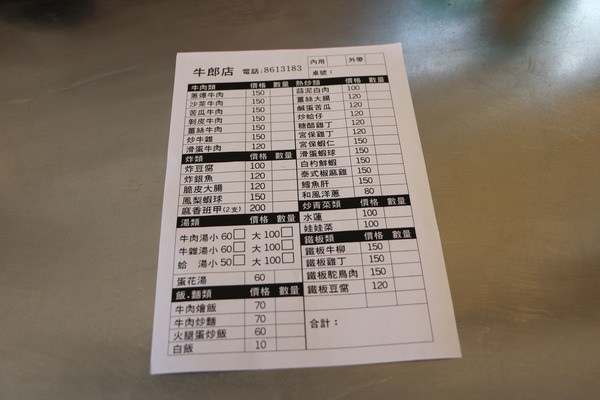 牛郎店 電話:8613183 內用 外帶
桌號：
牛肉類 價格 數量
蔥爆牛肉 150
沙茶牛肉 150
苦瓜牛肉 150
剝皮牛肉 150
薑絲牛肉 150
炒牛雜 150
滑蛋牛肉 120
炸類 價格 數量
炸豆腐 100
炸銀魚 120
脆皮大腸 120
鳳梨蝦球 150
麻香班甲(2支) 200
湯類 價格 數量
牛肉湯小60 大100
牛雜湯小60 大100
蛤 湯小50 大100
蛋花湯 60
飯.麵類 價格 數量
牛肉燴飯 70
牛肉炒麵 70
火腿蛋炒飯 60
白飯 10
熱炒類 價格 數量
蒜泥白肉 100
薑絲大腸 120
鹹蛋苦瓜 120
炒蛤仔 120
糖醋雞丁 120
宮保雞丁 120
宮保蝦仁 150
滑蛋蝦球 150
白灼鮮蝦 150
泰式椒麻雞 150
鱈魚肝 150
和風洋蔥 80
炒青菜類 價格 數量
水蓮 100
娃娃菜 100
鐵板類 價格 數量
鐵板牛柳 150
鐵板雞丁 150
鐵板鴕鳥肉 150
鐵板豆腐 120
合計：